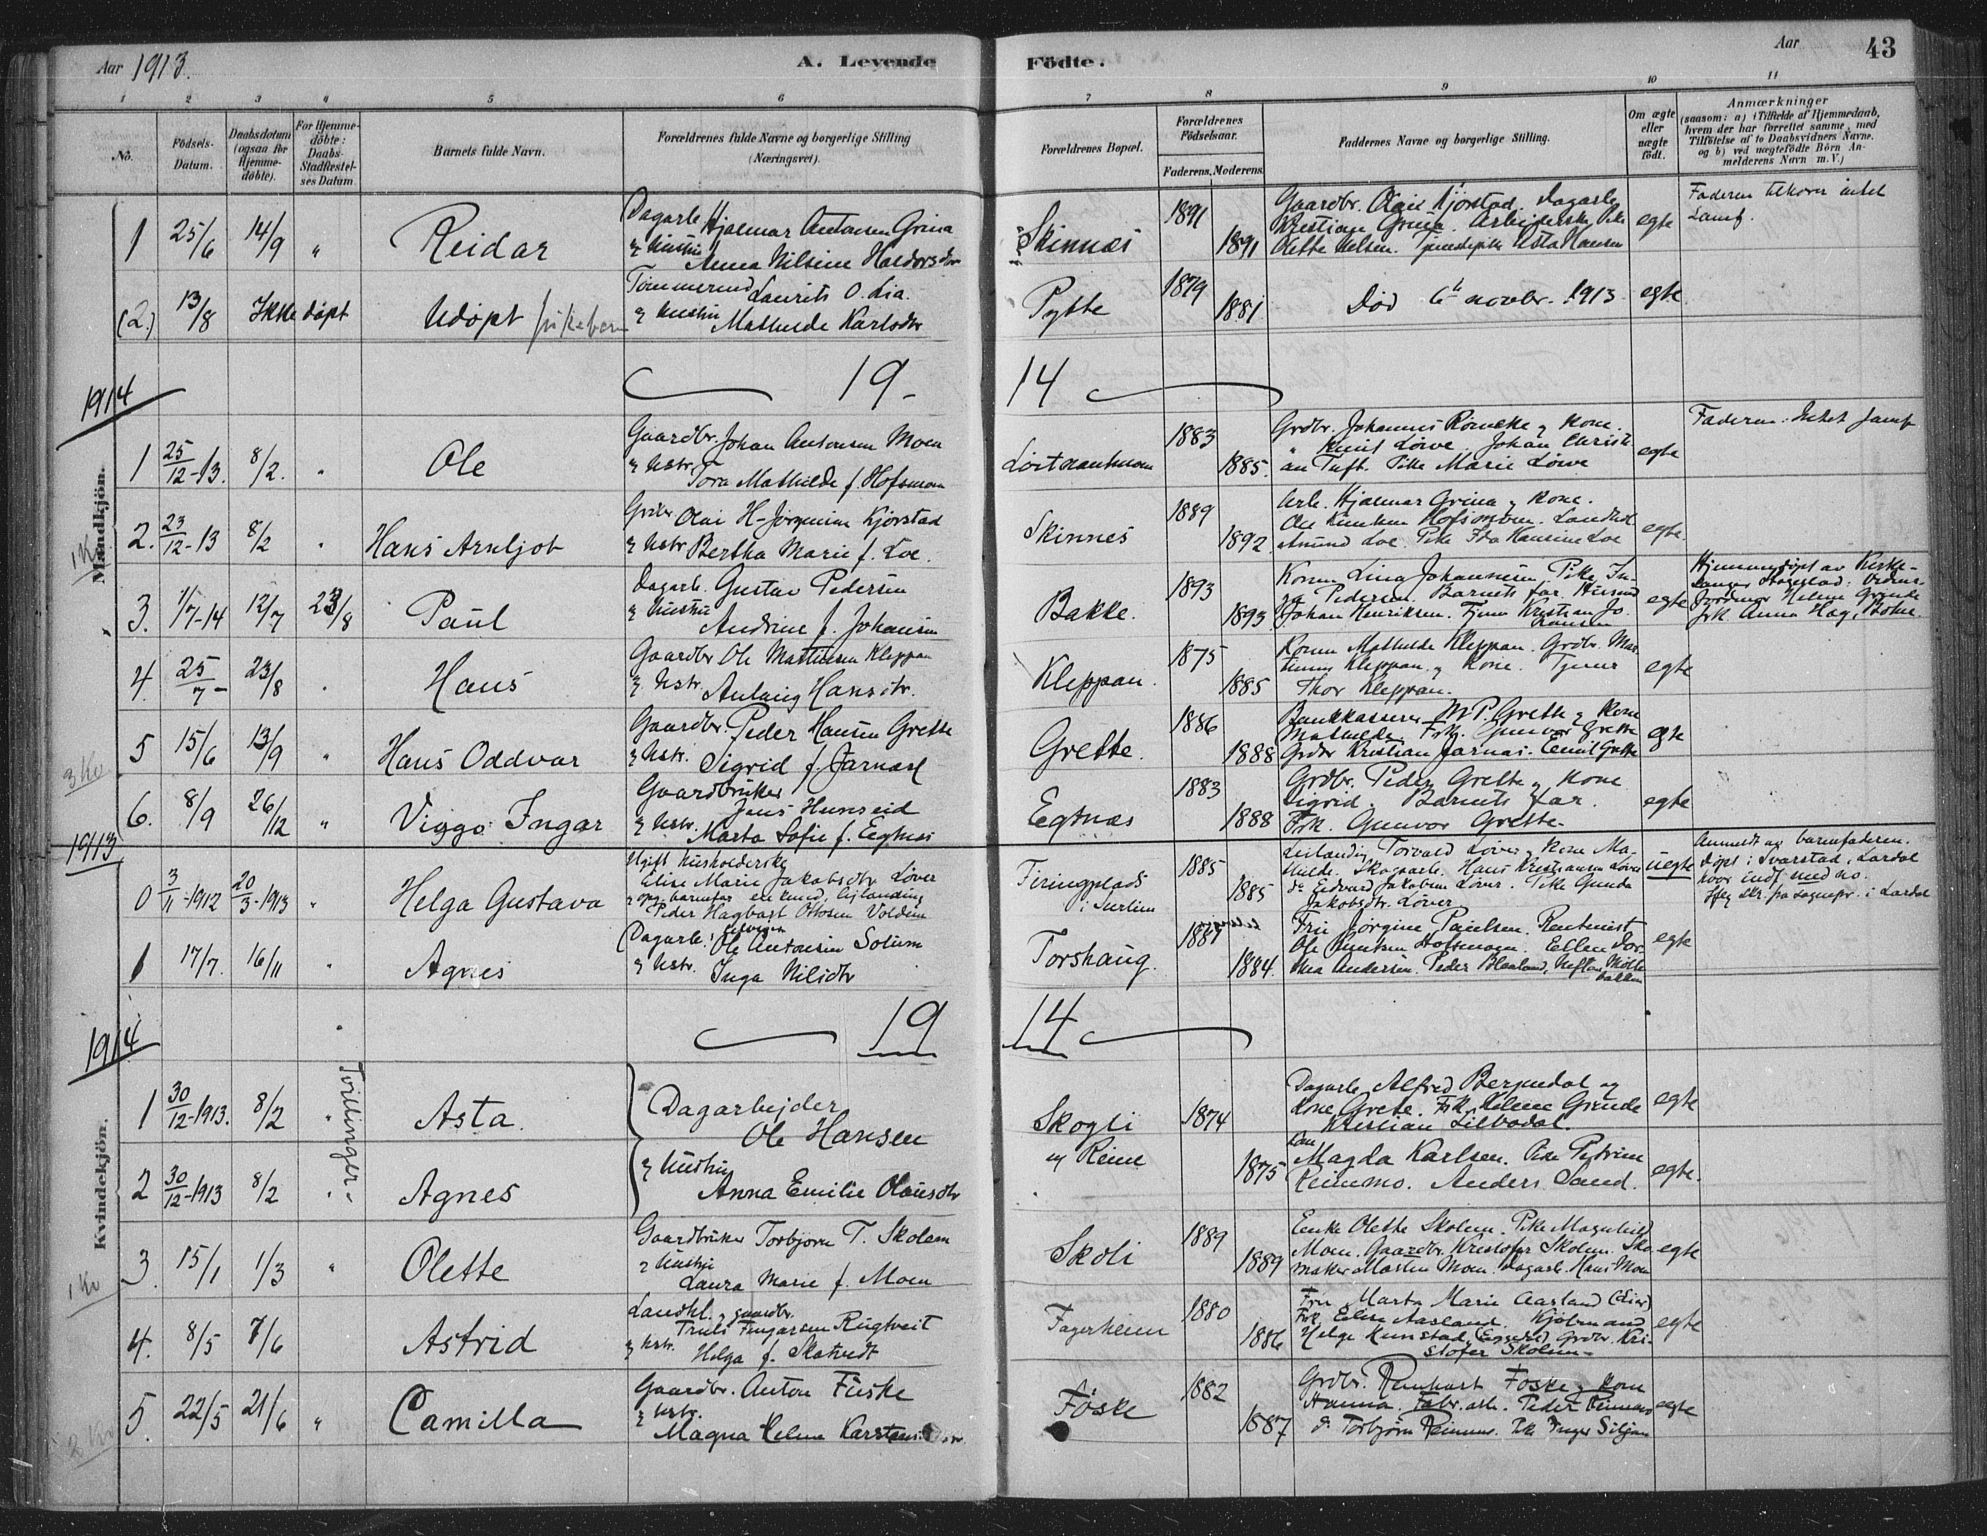 Aar 1913.
A. Levende
Födte.
Aar
43
1 2 3 4 5 6 7 8 9 10 11
No.
Födsels-
Datum.
Daabsdatum
(ogsaa for
Hjemme-
döbte).
For Hjemme-
döbte:
Daabs-
Stadfæstel-
ses Datum
Barnets fulde Navn.
Forældrenes fulde Navne og borgerlige Stilling
(Næringsvei).
Forældrenes Bopæl.
Forældrenes
Födselsaar.
Faderens.
Moderens.
Faddernes Navne og borgerlige Stilling.
Om ægte
eller
uægte
födt.
Anmærkninger
(saasom: a) i Tilfælde af Hjemmedaab,
hvem der har forrettet samme, med
Tilföielse af to Daabsvidners Navne.
og b) ved uægtefödte Börn An-
melderens Navn m. V.)
1 25/6 14/9 " Reidar
Dagarb. Hjalmar Antonsen Grina
& Hustru
Anna Nilsine Haldorsdtr
Skinnes 1891 1891
Gaardbr. Olai Kjorstad. Dagarb.
Kristian Grina. Arbejderske
Olette Nelsen. Tjenestepike Asta Hansen
egte
Faderen tilhører intet
Samf.
(2.) 13/8 Ikke døpt Udøpt pikebarn
Tømmermd Laurits O. Lia.
& Hustru
Mathilde Karlsdtr
Pytte 1879 1881
Død 6te novbr. 1913.
egte
1914
19 - 14
Mandkjön.
1 25/12-13. 8/2. " Ole
Gaardbr. Johan Antonsen Moen
& Hstr. Tora Mathilde f. Hofsmoen
1883 1885.
Grdbr. Johannes & Kone.
" Knut Löwe. Johan Christi
an Tuft. Pike Marie Löwe
egte
Faderen: Intet samf
2. 23/12-13 8/2 " Hans Arnljot
Grdbr Olai H. Jörgensen Kjörstad
& Hstr Bertha Marie f. Loe.
Skinnes 1889 1892.
Arb. Hjalmar Grina & Kone.
Ole Knutsen Hofsmoen. Landhdl.
Amund Loe. Pike Ida Hansine Loe
egte.
1 Kv.
3. 1/7-14 12/7 23/8 Paul
Dagarb. Gustav Pedersen
& Hustru
Andrine f. Johansen
Bakke. 1893 1893.
Konen Lina Johannesen. Pike In-
ga Pedersen. Barnets far. Husmd
Johan Henriksen. Tjener Kristian Jo
hansen
egte
Hjemmedøpt av Kirke-
sanger
Jordmor Helene Grinde
frk. Anna Hag, Bolme.
4. 25/7 - 23/8 " Hans
Gaardbr Ole Mathisen Kleppan
& Hstr. Anlaug Hansdtr.
Kleppan. 1875 1885
Konen Mathilde Kleppan. Grdbr. Mar
tinus Kleppan & Kone. Tjener
Thor Kleppan.
egte
5 15/6 13/9 " Hans Oddvar
Gaardbr. Peder Hansen Grette
& Hstr. Sigrid f. Jarnæs
Grette. 1886 1888
Bankkasserer M P. Grette & Kone
Mathilde. Frk. Gunvor Grette
Grdbr Kristian Jarnæs. Emil Grette
egte
3 Kv
6. 8/9 26/12 " Viggo Ingar
Gaardbruker
Jens Hunseid
& Hstr. Marta Sofie f. Egtnæs
Egtnæs 1883 1888
Grdbr. Peder Grette & Kone
Sigrid. Barnets far.
Frk. Gunvor Grette.
egte
1913
0 3/11-1912 20/3-1913 " Helga Gustava
Ugift husholderske
Elise Marie Jakobsdtr Löver
& opg. barnefar enkemd, lejlænding
Peder Hagbart Ottosen Voldem
Firingplads
1885 1885
Leilænding Torvald Löver & Kone Ma-
thilde. Skogsarb. Hans Kristiansen Löver
do Edvard Jakobsen Löver. Pike Gunda
Jakobsdtr. Löver
uegte
Anmeldt av barnefaderen.
Døpt i Svarstad, Lardal
hvor indf. med no.
iflg. skr. fra sognepr. i Lardal
1 17/7. 16/11 " Agnes
Dagarb. Ole Antonsen Solum
& Hstr. Inga Nilsdtr
Torshaug. 1881 1884.
Fru Jörgine Paulsen. Rentenist
Ole Knutsen Hofsmoen. Ellen Dor-
thea Andersen. Peder Blaaland, Neflan,
bakken
egte
1914
19 14
Kvindekjön.
Tvillinger -
1 30/12-1913. 8/2 " Asta.
Dagarbejder
Ole Hansen
& Hustru
Anna Emilie Olausdtr
Skogli
u Reine
1874 1875
Dagarb. Alfred Bergendal og
Kone Grete. Frk. Helene Grinde
Kristian Lilbodal.
egte
2 30/12-1913 8/2 " Agnes
Magda Karlsen. Pike Petrine
Reinmo. Anders Sand.
egte.
3. 15/1 1/3 " Olette
Gaardbruker Torbjorn T. Skolem
& Hustru
Laura Marie f. Moen
Skoli 1889 1889
Enke Olette Skolem. Pike Magnhild
Moen. Gaardbr. Kristofer Skolem. Sko
maker Martin Moen. Dagarb. Hans Moen
egte
1 Kv
4. 8/5 7/6 Astrid
Landhl. & gaardbr.
Truls Fingarsen Rugtveit
& Hstr. Helga f. Skatvedt
Fagerheim 1880 1886
Fru Marta Marie Aasland (Lier)
Frk. Elen Aasland. Kjöbmand
Helge Kunstad (Eggedal) Grdbr. Kri-
stofer Skolem -
egte
5. 22/5 21/6 " Camilla
Gaardbr. Anton Füske
& Hstr.
Magna Helene Karstensdtr
Föske 1882 1887
Grdbr. Reinhart Föske & Kone
Hanna. Fabr. arb. Peder Reinmo
do Torbjörn Reinmo. Pike Inger Siljan
egte
2 Kv